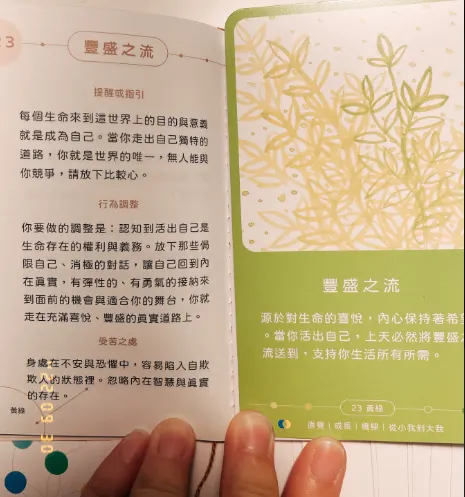 23
豐盛之流
提醒或指引
每個生命來到這世界上的目的與意義
就是成為自己。當你走出自己獨特的
道路,你就是世界的唯一,無人能與
你競爭,請放下比較心。
行為調整
你要做的調整是:認知到活出自己是
生命存在的權利與義務。放下那些侷
限自己、消極的對話,讓自己回到內
在真實,有彈性的、有勇氣的接納來
到面前的機會與適合你的舞台,你就
走在充滿喜悅、豐盛的真實道路上。
受苦之處
身處在不安與恐懼中,容易陷入自欺
欺人的狀態裡。忽略內在智慧與真實
的存在。
黃綠
豐盛之流
源於對生命的喜悅,內心保持著希望
。當你活出自己,上天必然將豐盛之
流送到,支持你生活所有所需。
23 黃綠
直覺|成長|機緣|從小我到大我